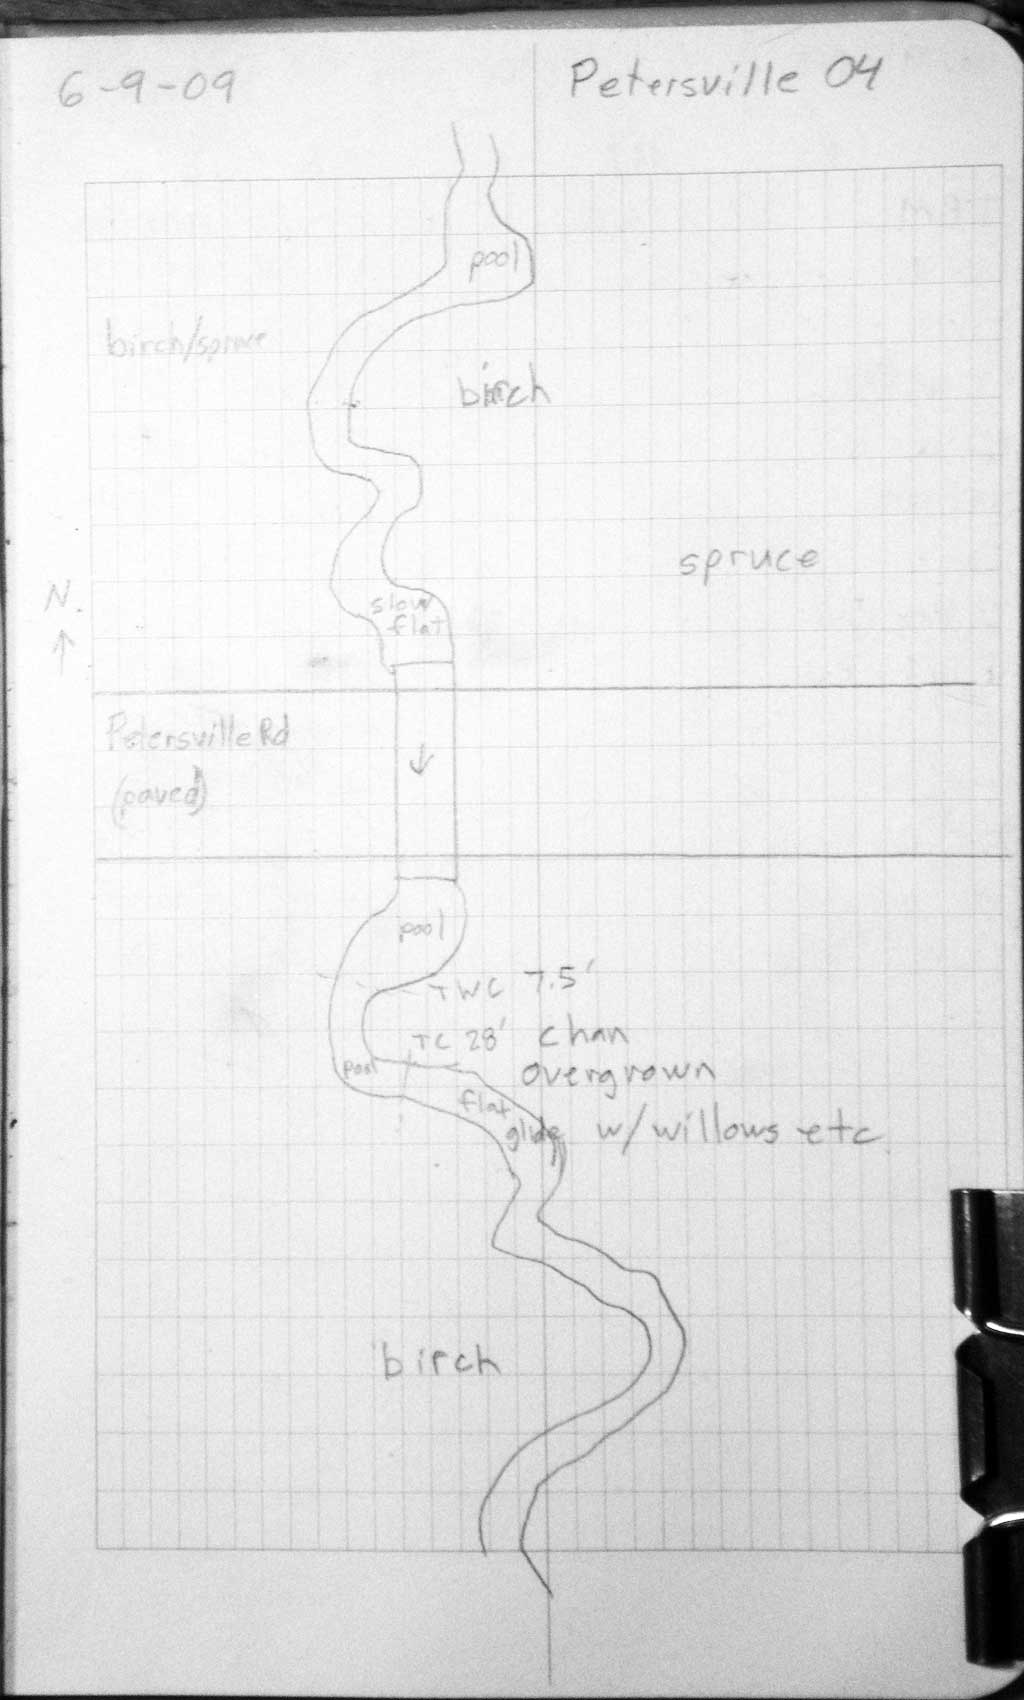 6-9-09
Petersville 04
pool
birch/spruce
birch
spruce
N.
slow
flat
Petersville Rd
(paved)
pool
TWC 7.5'
TC 28' chan
pool
overgrown
flat
glide
w/ willows etc
birch